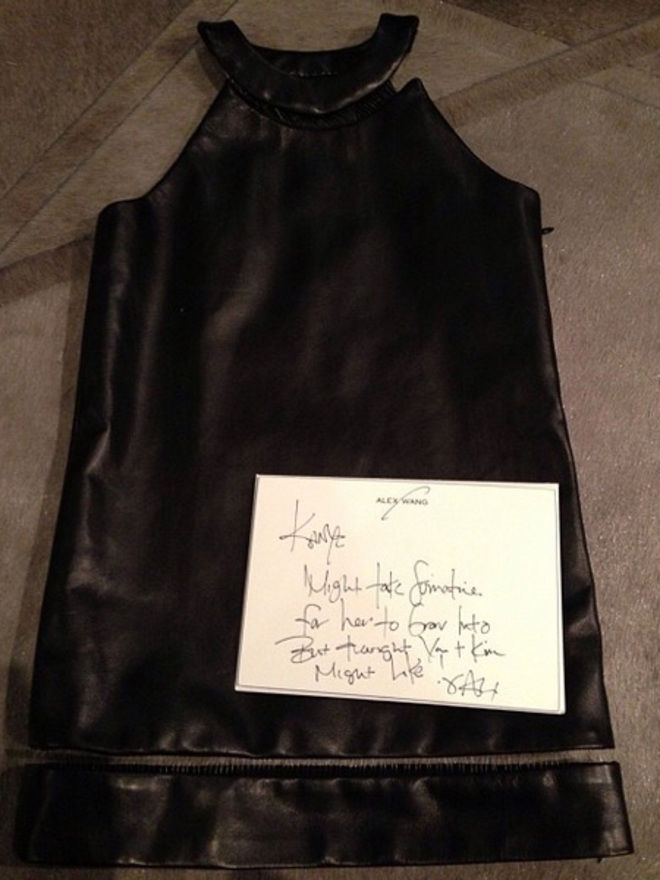 ALEX WANG
Kanye
Might take sometime
for her to Grow Into
But thought You + Kim
Might Like